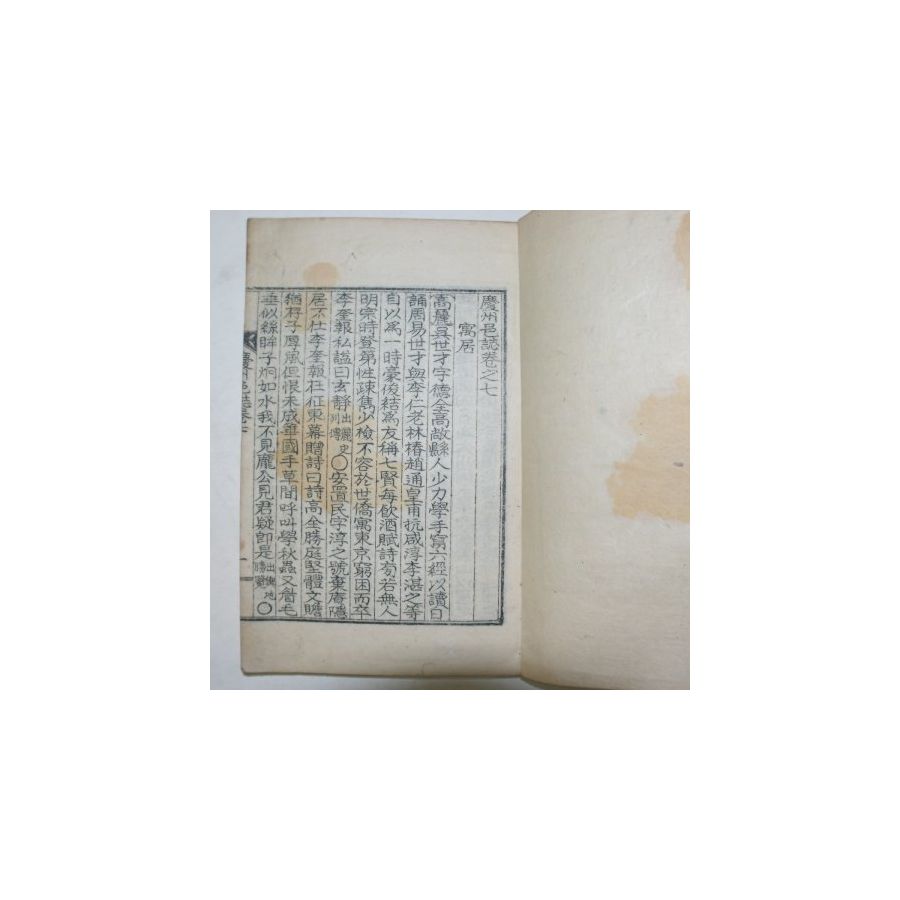 慶州邑誌卷之七
寓居
高麗吳世才字德全高敞縣人少力學手寫六經以讀日
誦周易世才與李仁老林椿趙通皇甫抗咸淳李湛之等
自以爲一時豪俊結爲友稱七賢每飮酒賦詩旁若無人
明宗時登第性疎雋少檢不容於世僑寓東京窮困而卒
李奎報私謚曰玄靜出麗史列傳○安置民字淳之號棄庵隱
居不仕李奎報在征東幕贈詩曰詩高全勝庭堅體文贍
猶存子厚風但恨未成華國手草間呼叫學秋蟲又髥毛
垂似絲眸子炯如水我不見龐公見君疑卽是出輿地勝覽○
慶州邑誌卷七
一